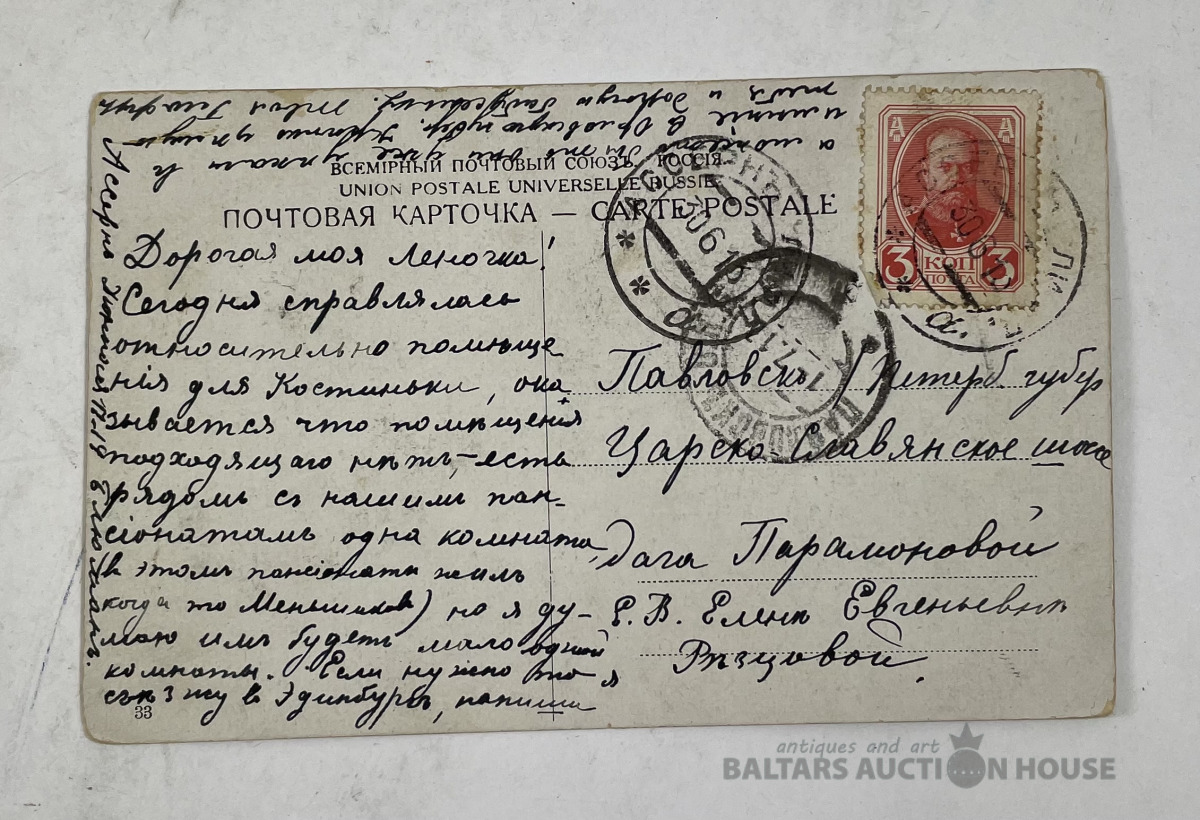 ВСЕМІРНЫЙ ПОЧТОВЫЙ СОЮЗЪ. РОССІЯ.
UNION POSTALE UNIVERSELLE RUSSIE
ПОЧТОВАЯ КАРТОЧКА — CARTE POSTALE
Дорогая моя Леночка!
Сегодня справлялась
относительно помѣще
нія для Костиньки, ока
зывается что помѣщенія
подходящаго нѣтъ,—есть
рядомъ съ нашимъ пан-
сіонатомъ одна комната,
(в этомъ пансіонатѣ жилъ
когда то Меньшиков) но я ду-
маю имъ будетъ мало одной
комнаты. Если нужно то я
съѣзжу в Эдинбургъ, напиши
а можетъ
имѣніе в Орловскую губер.
тебя и дорогую
Твоя
Ассернъ
Павловскъ (Петерб. губер
Царско Славянское шоссе
дача Парамоновой
Е. В. Еленѣ Евгеньевнѣ
Рѣзцовой.
3 КОП 3
ПОЧТА
ПАВЛОВСКЪ
33
antiques and art
BALTARS AUCTION HOUSE